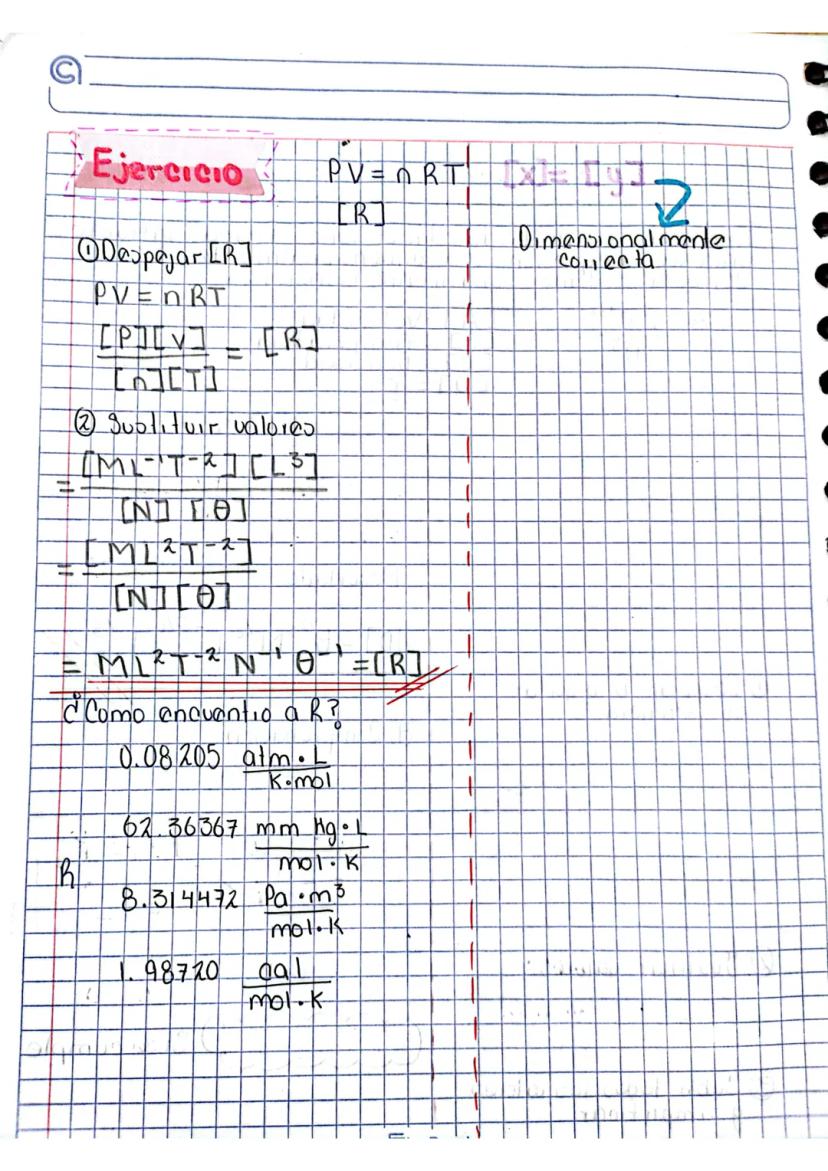 Ejercicio
PV = nRT
[R]
[x] = [y]
Dimensionalmente
correcta
① Despejar [R]
PV = nRT
[P][V] / [n][T] = [R]
② Sustituir valores
= [ML⁻¹T⁻²] [L³] / [N] [θ]
= [ML²T⁻²] / [N][θ]
= ML²T⁻² N⁻¹ θ⁻¹ = [R]
¿Como encuentro a R?
0.08205 atm·L / K·mol
62.36367 mm Hg·L / mol·K
R
8.314472 Pa·m³ / mol·K
1.98720 cal / mol·K